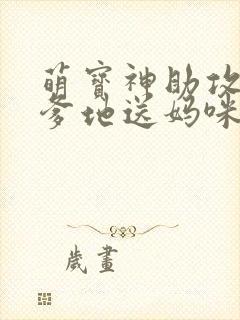 萌寶神助攻
爹地送媽咪
歲畫